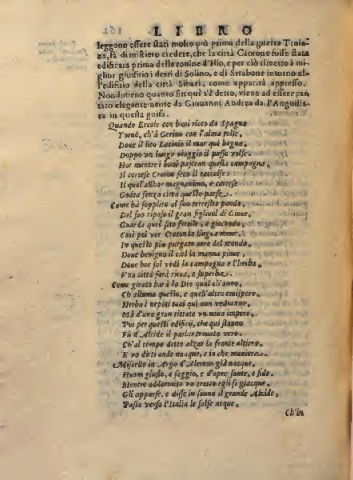 LIBRO
leggono essere stati molto più prima della guerra Troia-
na, fà di mistiero credere, che la città Crotone fosse stata
edificata prima delle rouine d'Ilio, e per ciò rimetto à mi-
glior giudicio i detti di Solino, e di Strabone intorno al-
l'edificio della città Sibari, come apparirà appresso.
Nondimeno quanto fin quì s'è detto, viene ad essere can
tato elegantemente da Giouanni Andrea da l'Anguilla-
ra in questa guisa.
Quando Ercole con buoi ricco da Spagna
Tornò, ch'à Gerion con l'alma tolse,
Doue il lito Latinio il mar quì bagna,
Doppo un lungo viaggio il passo volse.
Hor mentre i buoi pascean questa campagna,
Il cortese Croton seco il raccolse:
Il qual'allhor magnanimo, e cortese
Godea senza città questo paese.
Come hà supplito al suo terrestre pondo,
Del suo riposo il gran figliuol di Gioue,
Guarda quel sito fertile, e giocondo,
E di poi ver Croton la lingua moue.
In questo più purgato aere del mondo,
Doue benigno il ciel la manna pioue,
Doue hor sol vedi la campagna e l'herba,
Vna città farà ricca, e superba.
Come girato harà lo Dio quai gli anno,
Ch'alluma questo, e quell'altro emispero,
Herba i nepoti tuoi quì non vedranno,
Mà d'una gran cittate un nouo impero.
Poi per quelli edificij, che quì stanno
Fù d'Alcide il parlar trouato vero.
Ch'al tempo detto alzar la fronte altiera,
E vò dirti onde nacque, e in che maniera.
Miscello in Argo d'Alemon già nacque,
Huom giusto, e saggio, e d'opre sante, e fide.
Mentre addormito un tratto egli si giacque,
Gli apparse, e disse in sonno il grande Alcide,
Passa verso l'Italia le salse acque,
Ch'iui